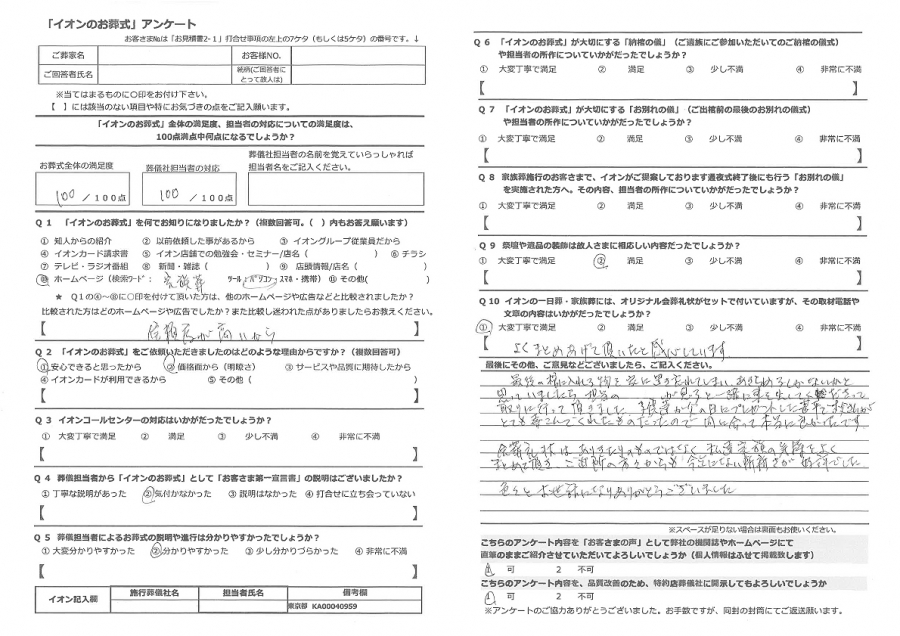 「イオンのお葬式」アンケート
お客さま№は「お見積書2-1」打合せ事項の左上の7ケタ（もしくは5ケタ）の番号です。↓
ご葬家名 お客様NO.
ご回答者氏名 続柄(ご回答者にとって故人は)
※当てはまるものに〇印をお付け下さい。
【 】には該当のない項目や特にお気づきの点をご記入願います。
「イオンのお葬式」全体の満足度、担当者の対応についての満足度は、
100点満点中何点になるでしょうか？
お葬式全体の満足度 葬儀社担当者の対応
葬儀社担当者の名前を覚えていらっしゃれば
担当者名をご記入ください。
100 ／100点 100 ／100点
Q 1 「イオンのお葬式」を何でお知りになりましたか？（複数回答可。( ) 内もお答え願います）
① 知人からの紹介 ② 以前依頼した事があるから ③ イオングループ従業員だから
④ イオンカード請求書 ⑤ イオン店舗での勉強会・セミナー/店名 ( ) ⑥ チラシ
⑦ テレビ・ラジオ番組 ⑧ 新聞・雑誌 ( ) ⑨ 店頭情報/店名 ( )
⑩ ホームページ（検索ワード： 家族葬 ツール：パソコン・スマホ・携帯）⑪ その他( )
★ Q1の④～⑩に〇印を付けて頂いた方は、他のホームページや広告などと比較されましたか？
比較された方はどのホームページや広告でしたか？また比較し迷われた点がありましたらお教えください。
【 信頼度が高いから 】
Q 2 「イオンのお葬式」をご依頼いただきましたのはどのような理由からですか？（複数回答可）
①安心できると思ったから ②価格面から（明瞭さ） ③サービスや品質に期待したから
④イオンカードが利用できるから ⑤その他 ( )
【 】
Q 3 イオンコールセンターの対応はいかがだったでしょうか？
① 大変丁寧で満足 ② 満足 ③ 少し不満 ④ 非常に不満
【 】
Q 4 葬儀担当者から「イオンのお葬式」として「お客さま第一宣言書」の説明はございましたか？
①丁寧な説明があった ②気付かなかった ③説明はなかった ④打合せに立ち会っていない
【 】
Q 5 葬儀担当者によるお葬式の説明や進行は分かりやすかったでしょうか？
①大変分かりやすかった ②分かりやすかった ③少し分かりづらかった ④非常に不満
【 】
イオン記入欄 施行葬儀社名 担当者氏名 備考欄
東京都 KA00040959
Q 6 「イオンのお葬式」が大切にする「納棺の儀」（ご遺族にご参加いただいてのご納棺の儀式）
や担当者の所作についていかがだったでしょうか？
① 大変丁寧で満足 ② 満足 ③ 少し不満 ④ 非常に不満
【 】
Q 7 「イオンのお葬式」が大切にする「お別れの儀」（ご出棺前の最後のお別れの儀式）
や担当者の所作についていかがだったでしょうか？
① 大変丁寧で満足 ② 満足 ③ 少し不満 ④ 非常に不満
【 】
Q 8 家族葬施行のお客さまで、イオンがご提案しております通夜式終了後にも行う「お別れの儀」
を実施された方へ。その内容、担当者の所作についていかがだったでしょうか？
① 大変丁寧で満足 ② 満足 ③ 少し不満 ④ 非常に不満
【 】
Q 9 祭壇や遺品の装飾は故人さまに相応しい内容だったでしょうか？
① 大変丁寧で満足 ② 満足 ③ 少し不満 ④ 非常に不満
【 】
Q 10 イオンの一日葬・家族葬には、オリジナル会葬礼状がセットで付いていますが、その取材電話や
文章の内容はいかがだったでしょうか？
① 大変丁寧で満足 ② 満足 ③ 少し不満 ④ 非常に不満
【 よくまとめあげて頂いたと感心しています 】
最後にその他、ご意見などございましたら、ご記入ください。
最後の棺に入れる物を家に置き忘れてしまい、あきらめるしかないかと
思っていましたら、担当の が息子と一緒に車を出して下さって
取りに行って頂きました。 の日にプレゼントした
とても喜んでくれたものだったので 間に合って本当に良かったです。
会葬礼状はありきたりのものではなく 私達家族の気持をよく
まとめて頂き、ご近所の方々からも 今までにない斬新さが 好評でした
色々とお世話になりありがとうございました
※スペースが足りない場合は裏面もお使いください。
こちらのアンケート内容を「お客さまの声」として弊社の機関誌やホームページにて
直筆のままご紹介させていただいてよろしいでしょうか（個人情報はふせて掲載致します）
1 可 2 不可
こちらのアンケート内容を、品質改善のため、特約店葬儀社に開示してもよろしいでしょうか
1 可 2 不可
※アンケートのご協力ありがとうございました。お手数ですが、同封の封筒にてご返送願います。